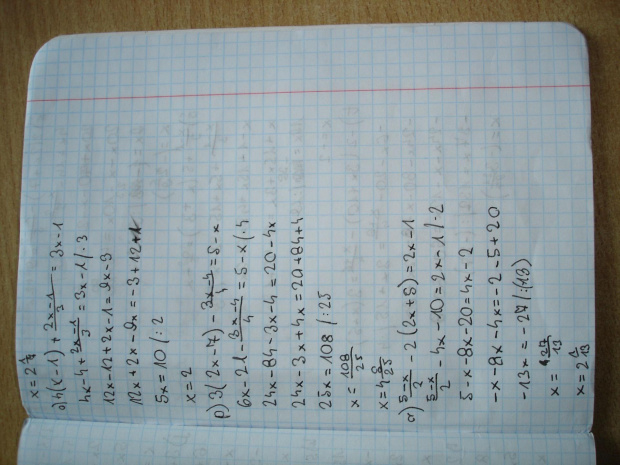 x = 2 1/4
o) 4(x-1) + 2x-1/3 = 3x-1
4x-4 + 2x-1/3 = 3x-1 /·3
12x-12+2x-1 = 9x-3
12x+2x-9x = -3+12+1
5x = 10 /: 2
x = 2
p) 3(2x-7) - 3x-4/4 = 5-x
6x-21 - 3x-4/4 = 5-x /·4
24x-84-3x-4 = 20-4x
24x-3x+4x = 20+84+4
25x = 108 /: 25
x = 108/25
x = 4 8/25
r) 5-x/2 - 2(2x+5) = 2x-1
5-x/2 - 4x-10 = 2x-1 /·2
5-x-8x-20 = 4x-2
-x-8x-4x = -2-5+20
-13x = -27 /:(13)
x = 27/13
x = 2 1/13